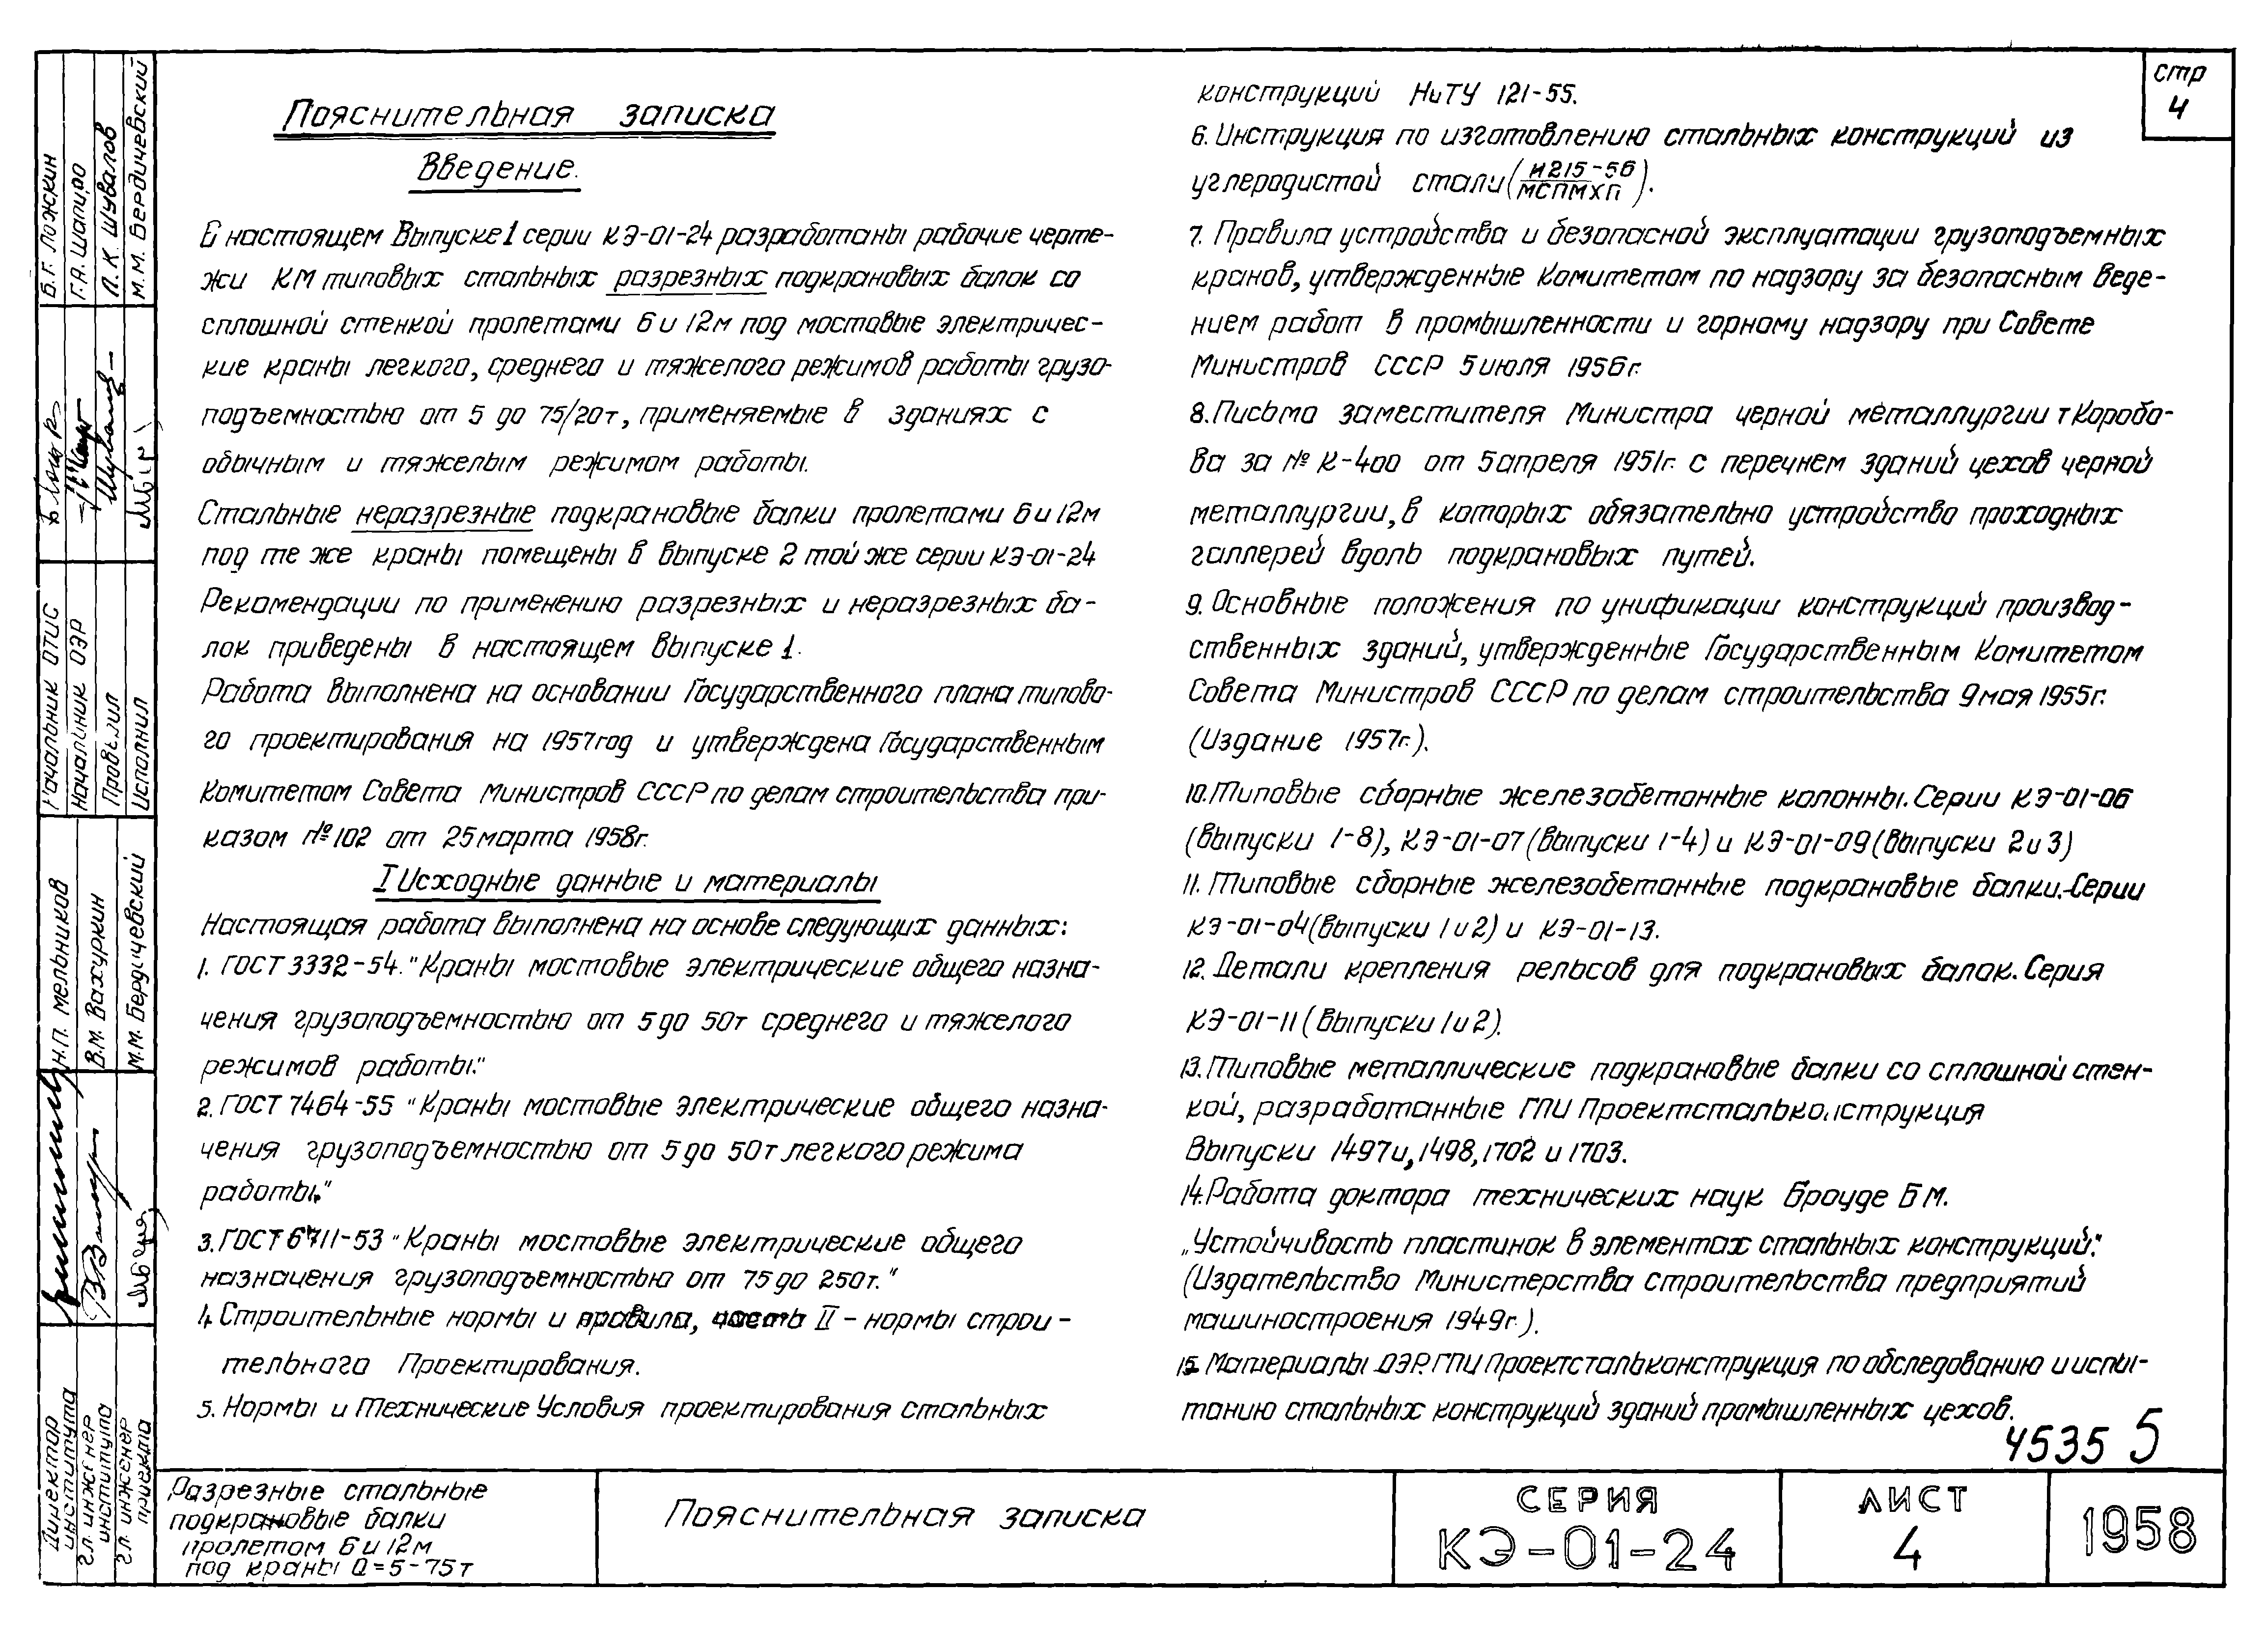 Пояснительная записка
Введение.
В настоящем Выпуске 1 серии КЭ-01-24 разработаны рабочие черте-
жи КМ типовых стальных разрезных подкрановых балок со
сплошной стенкой пролетами 6 и 12м под мостовые электричес-
кие краны легкого, среднего и тяжелого режимов работы грузо-
подъемностью от 5 до 75/20т, применяемые в зданиях с
обычным и тяжелым режимом работы.
Стальные неразрезные подкрановые балки пролетами 6 и 12м
под те же краны помещены в выпуске 2 той же серии КЭ-01-24
Рекомендации по применению разрезных и неразрезных ба-
лок приведены в настоящем выпуске 1.
Работа выполнена на основании Государственного плана типово-
го проектирования на 1957год и утверждена Государственным
Комитетом Совета Министров СССР по делам строительства при-
казом №102 от 25 марта 1958г.
I Исходные данные и материалы
Настоящая работа выполнена на основе следующих данных:
1. ГОСТ 3332-54. "Краны мостовые электрические общего назна-
чения грузоподъемностью от 5 до 50т среднего и тяжелого
режимов работы."
2. ГОСТ 7464-55 "Краны мостовые электрические общего назна-
чения грузоподъемностью от 5 до 50т легкого режима
работы."
3. ГОСТ 6711-53 "Краны мостовые электрические общего
назначения грузоподъемностью от 75 до 250т."
4. Строительные нормы и правила, часть II - нормы строи-
тельного Проектирования.
5. Нормы и Технические Условия проектирования стальных
конструкций НиТУ 121-55.
6. Инструкция по изготовлению стальных конструкций из
углеродистой стали (И215-56/МСПМХП).
7. Правила устройства и безопасной эксплуатации грузоподъемных
кранов, утвержденные Комитетом по надзору за безопасным веде-
нием работ в промышленности и горному надзору при Совете
Министров СССР 5 июля 1956г.
8. Письмо заместителя Министра черной металлургии т Коробо-
ва за № К-400 от 5 апреля 1951г. с перечнем зданий цехов черной
металлургии, в которых обязательно устройство проходных
галлерей вдоль подкрановых путей.
9. Основные положения по унификации конструкций производ-
ственных зданий, утвержденные Государственным Комитетом
Совета Министров СССР по делам строительства 9 мая 1955г.
(Издание 1957г.).
10. Типовые сборные железобетонные колонны. Серии КЭ-01-06
(выпуски 1-8), КЭ-01-07 (выпуски 1-4) и КЭ-01-09 (выпуски 2 и 3)
11. Типовые сборные железобетонные подкрановые балки.-Серии
КЭ-01-04 (выпуски 1 и 2) и КЭ-01-13.
12. Детали крепления рельсов для подкрановых балок. Серия
КЭ-01-11 (выпуски 1 и 2).
13. Типовые металлические подкрановые балки со сплошной стен-
кой, разработанные ГПИ Проектстальконструкция
Выпуски 1497и, 1498, 1702 и 1703.
14. Работа доктора технических наук Броуде Б М.
„Устойчивость пластинок в элементах стальных конструкций."
(Издательство Министерства строительства предприятий
машиностроения 1949г.).
15. Материалы ОЭР. ГПИ Проектстальконструкция по обследованию и испы-
танию стальных конструкций зданий промышленных цехов.
стр
4
4535 5
Разрезные стальные
подкрановые балки
пролетом 6 и 12м
под краны Q=5-75т
Пояснительная записка
СЕРИЯ
КЭ-01-24
ЛИСТ
4
1958
Б.Г. Ложкин
Г.А. Шапиро
Л.К. Шувалов
М.М. Бердичевский
Начальник ОТИС
Начальник ОЭР
Проверил
Исполнил
Н.П. Мельников
В.М. Вахуркин
М.М. Бердичевский
Директор института
Гл. инженер института
Гл. инженер проекта